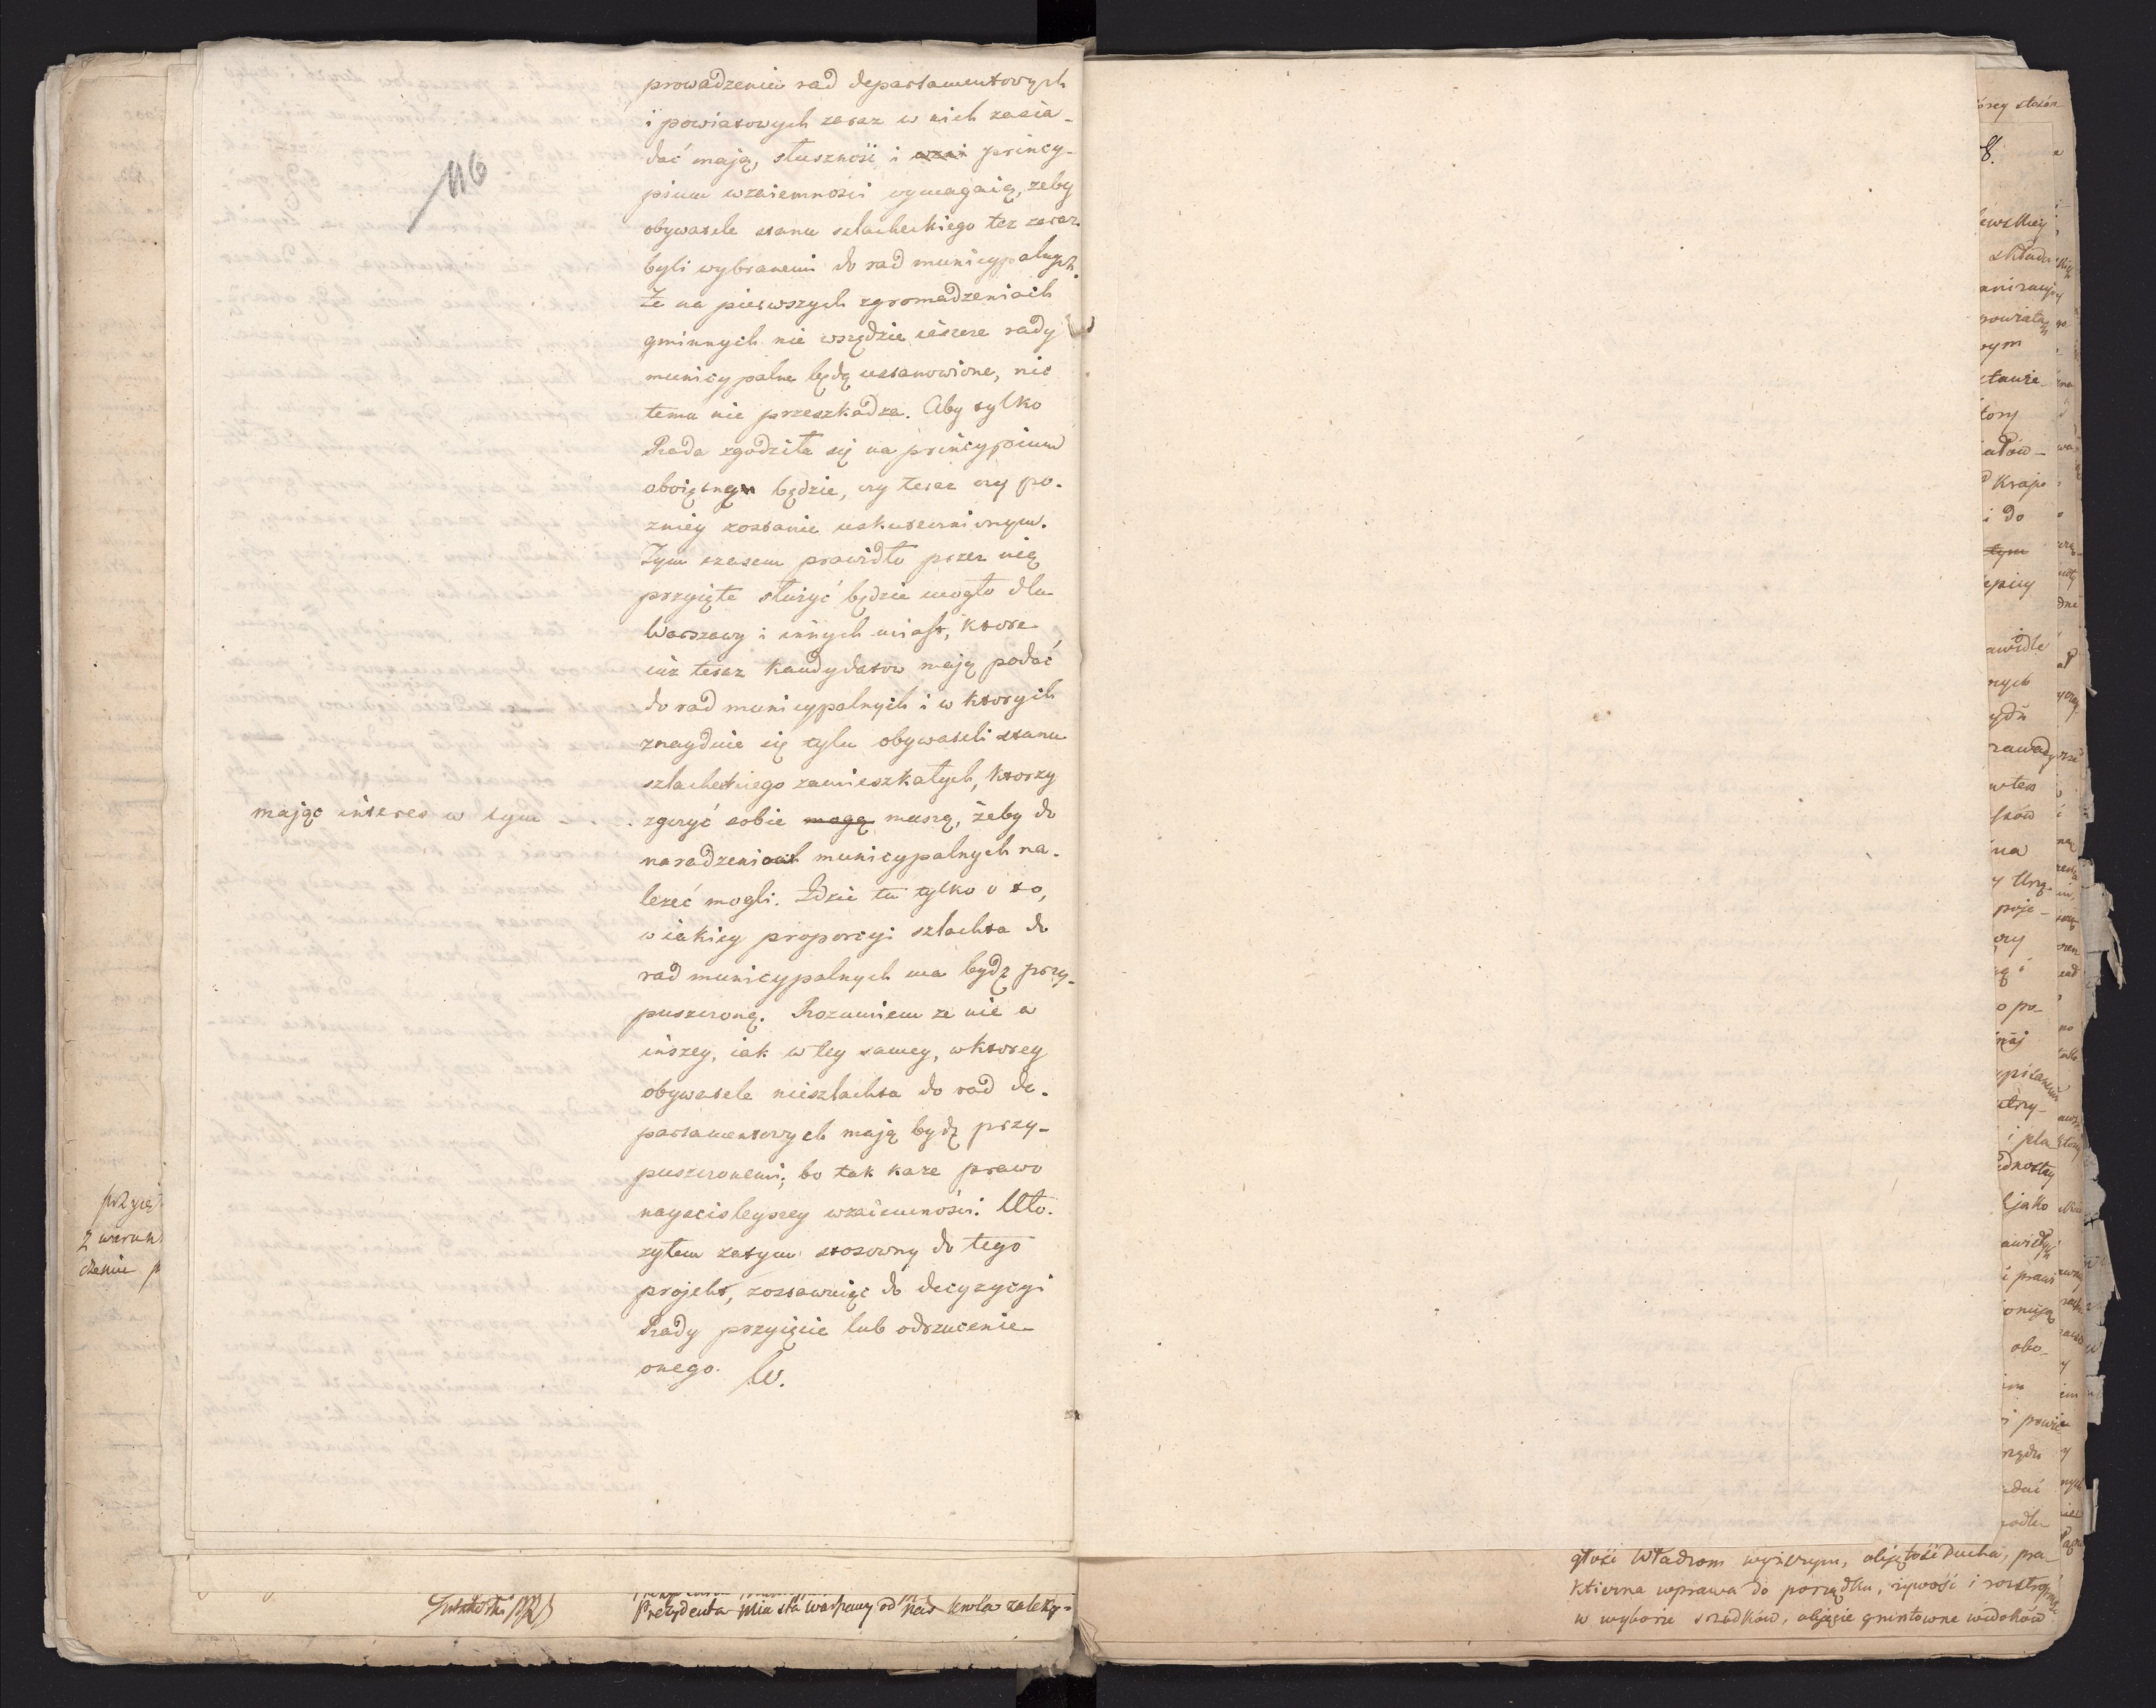 116
prowadzeniu rad departamentowych
i powiatowych zaraz w nich zasia-
dać mają, słuszność i princy-
pium wzaiemności wymagaią, zeby
obywatele stanu szlacheckiego tez zaraz
byli wybranemi do rad municypalnych.
Ze na pierwszych zgromadzeniach
gminnych nie wszędzie ieszcze rady
municypalne będą ustanowione, nic
temu nie przeszkadza. Aby tylko
Rada zgodziła się na princypium
oboiętnym będzie, czy teraz czy po-
zniey zostanie uskutecznionym.
Tym czasem prawidło przez nię
przyięte służyć będzie mogło dla
Warszawy i innych miast, ktore
iuz teraz kandydatow mają podać
do rad municypalnych i w ktorych
znayduie się tylu obywateli stanu
szlacheckiego zamieszkałych, ktorzy
mając interes w tym - . . . zyczyć sobie mogą muszą, żeby do
naradzeniach municypalnych na-
lezeć mogli. Idzie tu tylko o to,
w iakiey proporcyi szlachta do
rad municypalnych ma bydz przy-
puszczoną. Rozumiem ze nie w
inszey, iak w tey samey, w ktorey
obywatele nieszlachta do rad de-
partamentowych mają bydz przy-
puszczonemi; bo tak kaze prawo
nayscisleyszey wzaiemności. Uło-
zyłem zatym stosowny do tego
projekt, zostawuiąc do decyzyi
Rady przyięcie lub odrzucenie
onego. W.
Prezydenta Miasta Warszawy od Nas Krola zależy-
głośi Władzom wyższym, objętość Ducha, pra-
ktyczna wprawa do porządku, żywość i roztrop
w wyborze srzodków, objęcie gruntowne widoków